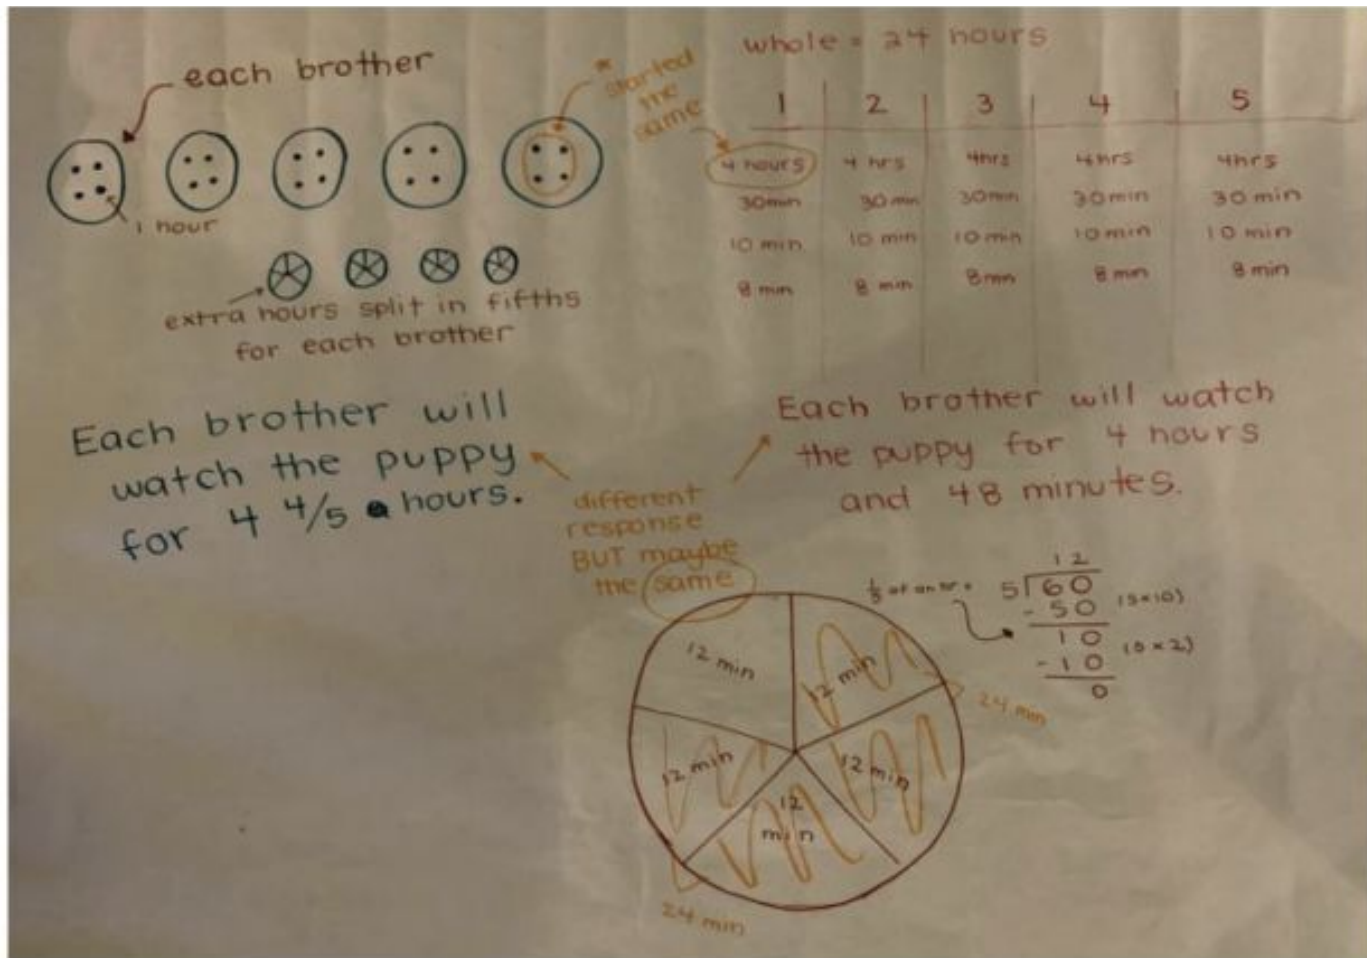 each brother
1 hour
extra hours split in fifths
for each brother
* started
the
same
whole = 24 hours
1 2 3 4 5
4 hours 4 hrs 4hrs 4hrs 4hrs
30min 30min 30min 30min 30 min
10 min 10 min 10 min 10 min 10 min
8 min 8 min 8min 8 min 8 min
Each brother will
watch the puppy
for 4 4/5 hours.
different
response
BUT maybe
the same
Each brother will watch
the puppy for 4 hours
and 48 minutes.
1/5 of an hr.
12
5 60
- 50 (5×10)
10
- 10 (5 × 2)
0
12 min
12 min
24 min
12 min
12 min
12
min
24 min